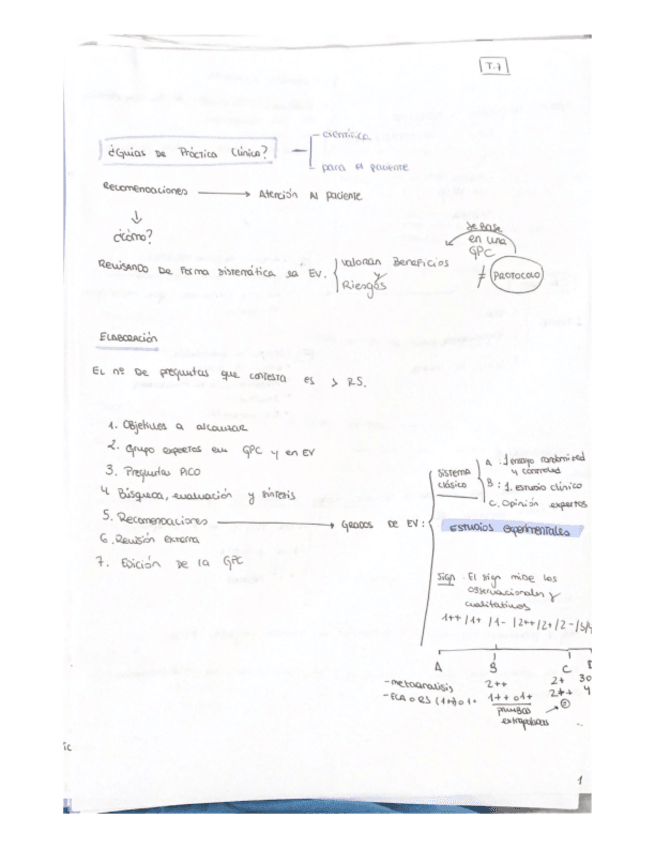 T.7
¿Guías De Práctica Clínica?
científica
para el paciente
Recomendaciones → Atención Al paciente
↓
¿cómo?
Revisando De Forma sistemática la EV.
valoran Beneficios
y
Riesgos
se base
en una
GPC
≠ PROTOCOLO
ELABORACIÓN
EL nº De preguntas que contesta es > RS.
1. Objetivos a alcanzar
2. Grupo expertos en GPC y en EV
3. Preguntas PICO
4. Búsqueda, evaluación y síntesis
5. Recomendaciones → GRADOS DE EV:
6. Revisión externa
7. Edición de la GPC
Sistema
clásico
A : 1 ensayo randomized
y controlad
B : 1. estudio clínico
C. Opinión expertos
Estudios experimentales
Sign. El sign mide los
observacionales y
cualitativos
1++ / 1+ / 1- / 2++ / 2+ / 2-
A
- metaanalisis
- ECA o RS (1++) o 1+
B
2++
1++ o 1+
pruebas
extrapoladas
C
2+
2++
3 o
4
ic
1